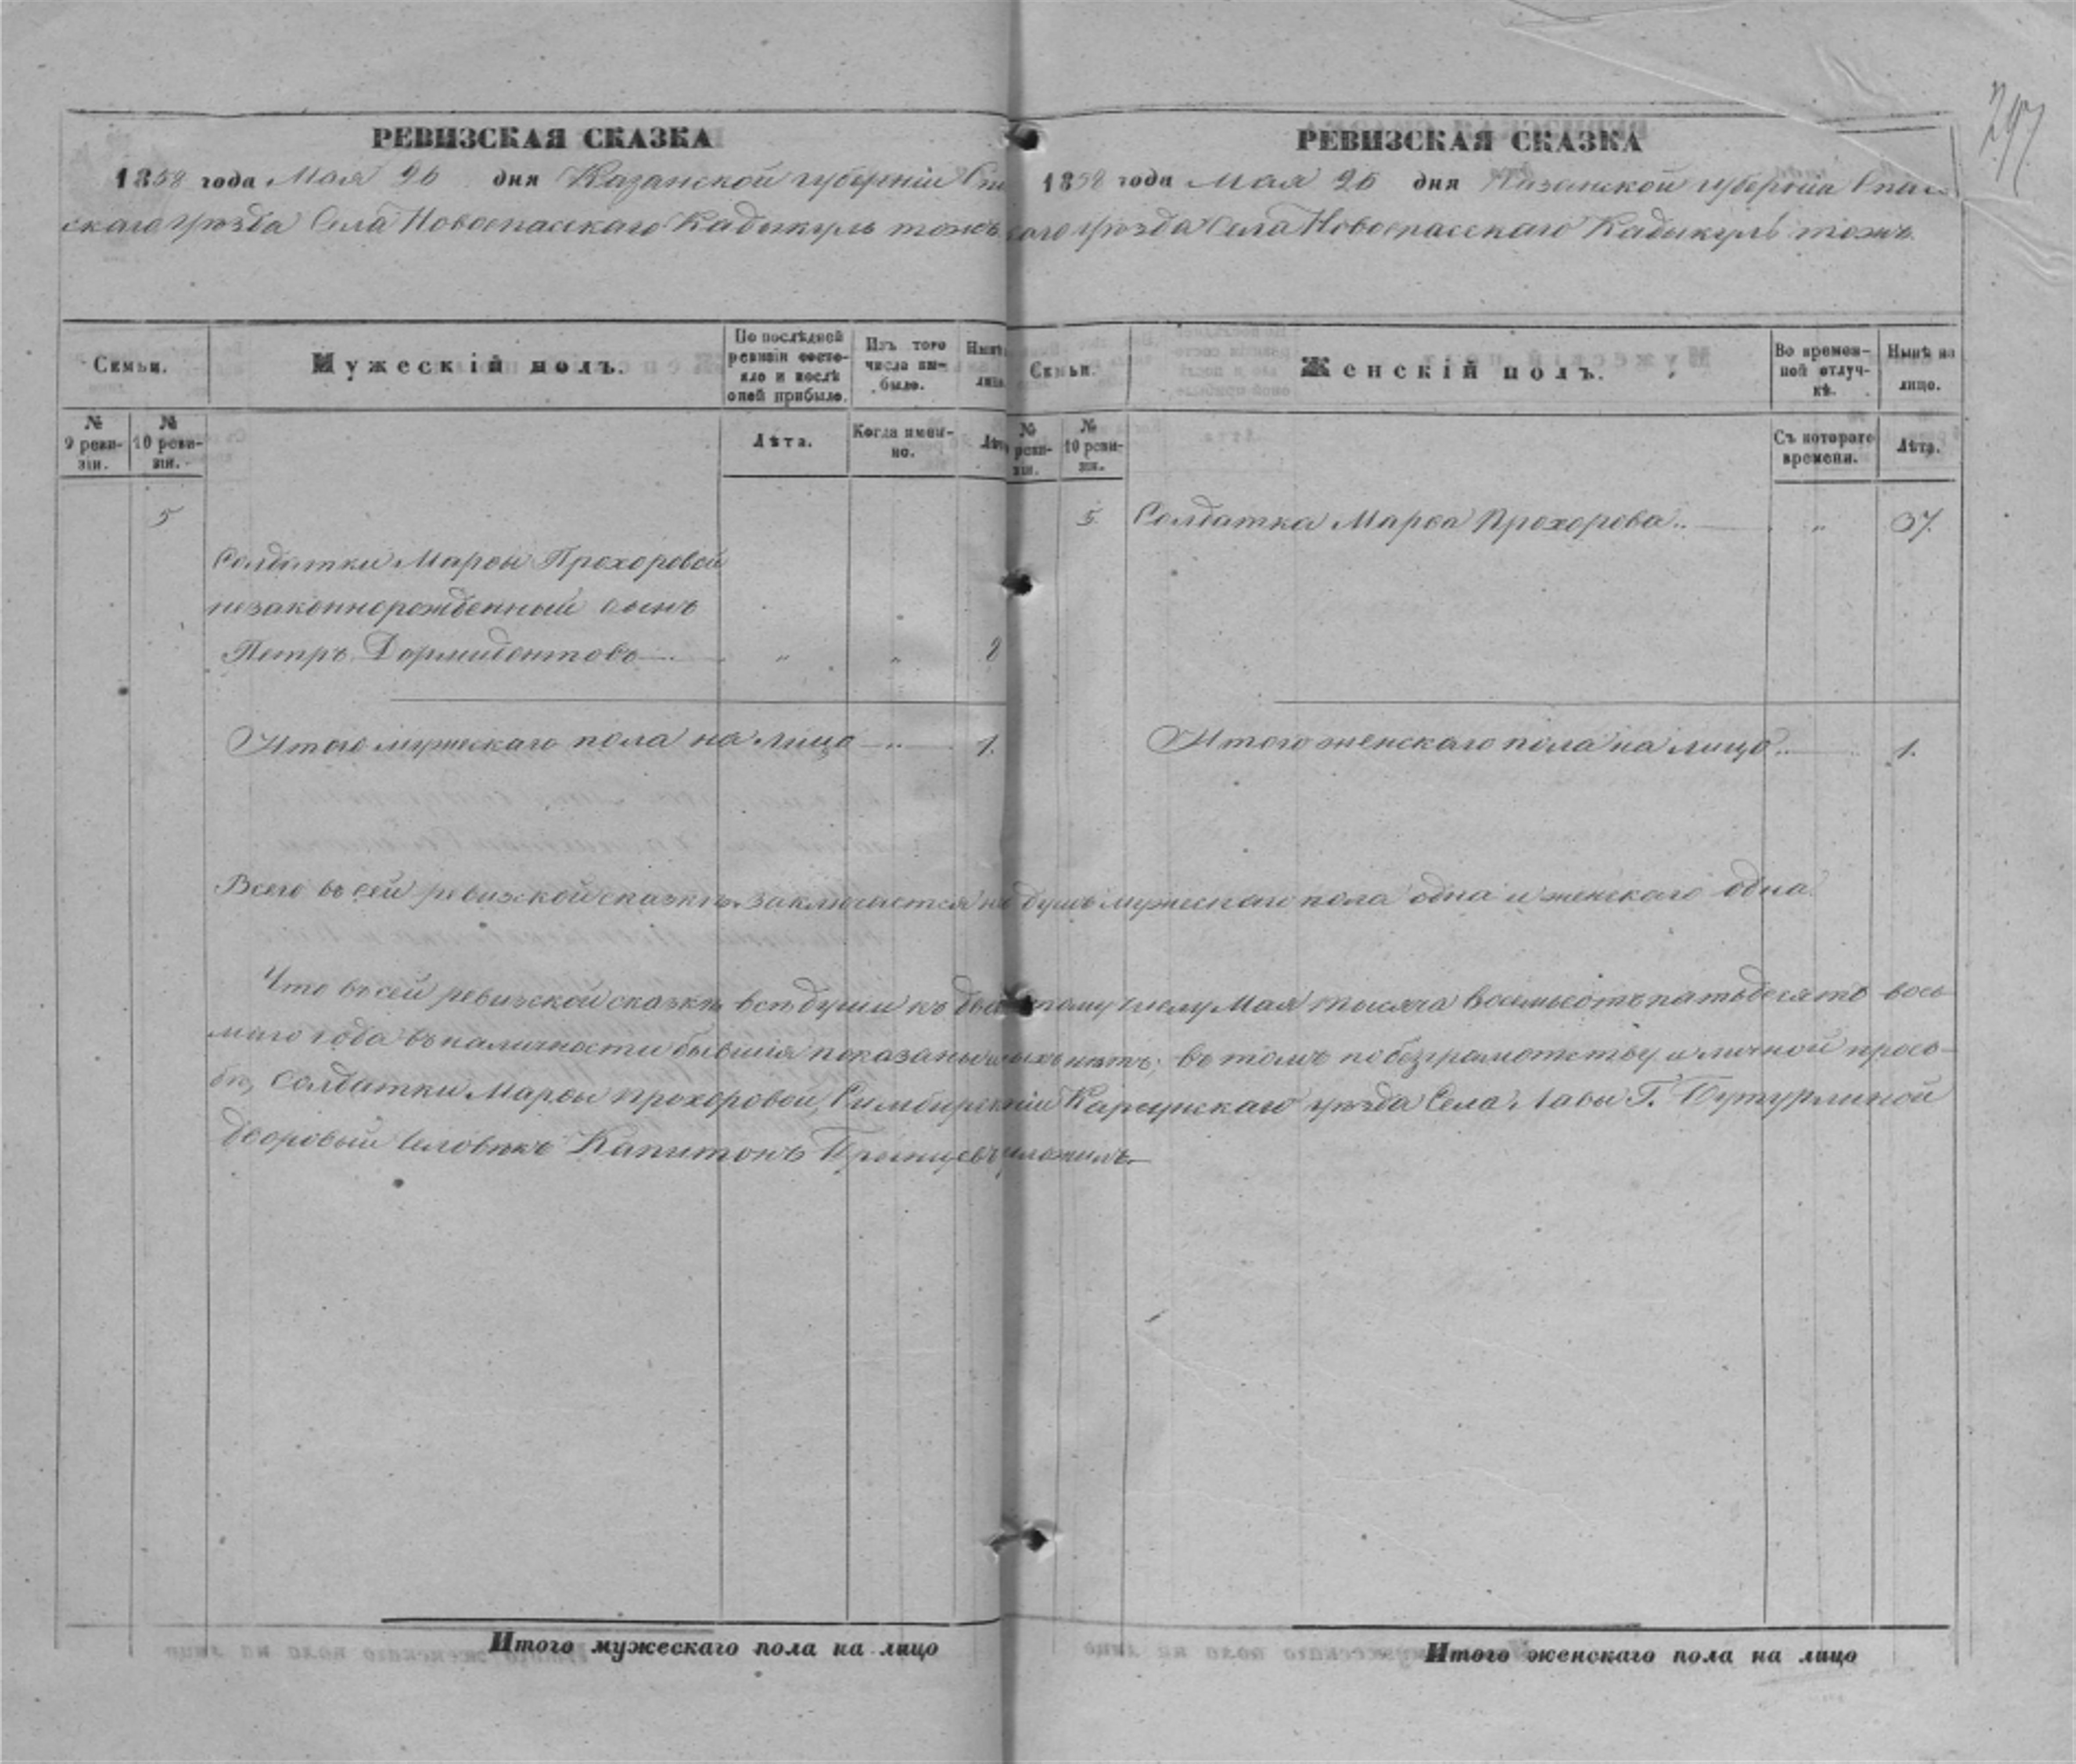 297
РЕВИЗСКАЯ СКАЗКА
1858 года Мая 26 дня Казанской губерніи Спас
скаго уѣзда Села Новоспасскаго Кадыкуль тожъ
Семьи.
Мужескій полъ.
По послѣдней ревизіи состояло и послѣ оной прибыло.
Изъ того числа выбыло.
Нынѣ лицо.
№ 9 ревизіи.
№ 10 ревизіи.
Лѣта.
Когда именно.
Лѣта
5
Солдатки Марѳы Прохоровой
незаконнорожденный сынъ
Петръ Дормидонтовъ " " 2
Итого мужескаго пола на лицо " 1.
РЕВИЗСКАЯ СКАЗКА
1858 года Мая 26 дня Казанской губерніи Спас
скаго уѣзда Села Новоспасскаго Кадыкуль тожъ.
Семьи.
Женскій полъ.
Во временной отлучкѣ.
Нынѣ на лицо.
№ ревизіи.
№ 10 ревизіи.
Съ котораго времени.
Лѣта.
5. Солдатка Марѳа Прохорова.. " 37.
Итого женскаго пола на лицо.. 1.
Всего въ сей ревизкой сказкѣ заключается душъ мужескаго пола одна и женскаго одна.
Что въ сей ревизской сказкѣ всѣ души къ числу Мая тысяча восемьсотъ пятьдесятъ вось
маго года въ наличности бывшія показаны нѣтъ; въ томъ по безграмотству и личной прось-
бѣ, Солдатки Марѳы Прохоровой, Карсунскаго уѣзда Села Лавы Г. Бутурлиной
дворовый человѣкъ Капитонъ
Итого мужескаго пола на лицо
Итого женскаго пола на лицо